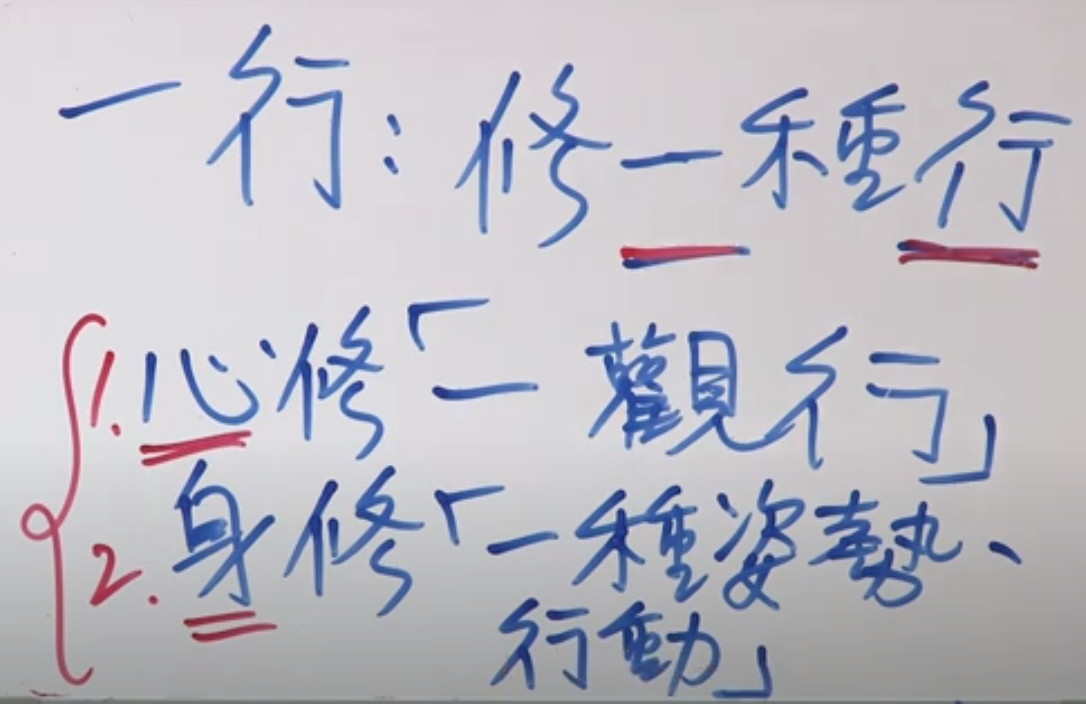 一行：修一種行
1. 心修「一觀行」
2. 身修「一種姿勢、
行動」